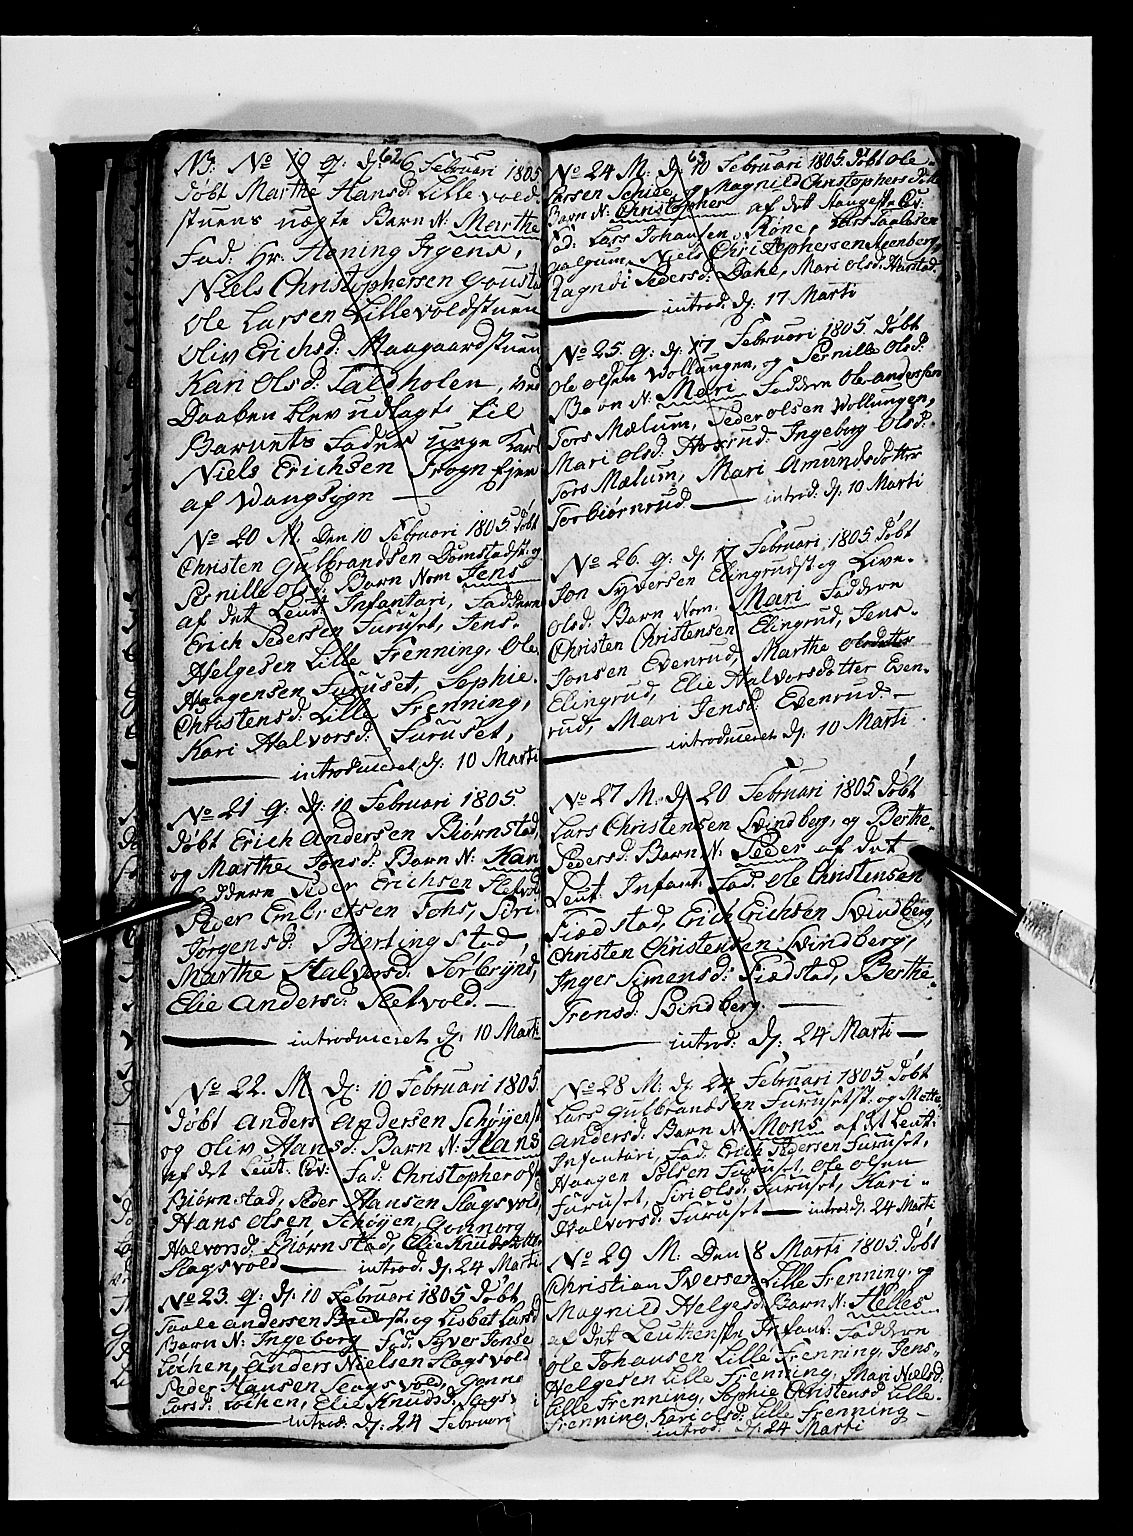 62
NB. No 19 q: dj: 6 Februari 1805
døbt Marthe Hansd: Lille vold-
stuens uægte Barn N: Marthe
Fad: Hr. Honing Irgens,
Niels Christophersen Goustad
Ole Larsen Lillevoldstuen
Oliv Erichsd: Haagaardstuen
Kari Olsd: Talsholen, ved
Daaben blev udlagt til
Barnets Fader unge Karl
Niels Erichsen Frogn Ejer
af Wangsogn
No 20 M. Den 10 Februari 1805. døbt
Christen Gulbrandsen Domstadst. og
Pernille Olsd: Barn Nom Jens
af det Leut: Infantari, Faddere
Erich Pedersen Furuset, Jens
Helgesen Lille Frenning, Ole
Haagensen Furuset, Sophie
Christensd: Lille Frenning,
Kari Halvorsd: Furuset,
introduceret dj: 10 Marti
No 21 q: dj: 10 Februari 1805.
døbt Erich Andersen Biørnstad,
og Marthe Jonsd: Barn N: Kari
Faddere Peder Erichsen Sletvold
Peder Embretsen Sohs, Siri
Jørgensd: Bierlingstad,
Marthe Halvorsd: Sørbrynd,
Elie Andersd: Sletvold.
introduceret dj: 10 Marti
No 22. M. Dj: 10 Februari 1805.
døbt Anders Andersen Schøyenst
og Oliv Hansd: Barn N: Hans
af det Leut. Cav: Fad: Christopher Ols
Biørnstad, Peder Hansen Slagsvold,
Hans Olsen Schøyen, Gonnorg
Halvorsd: Biørnstad, Elie Knudsdatter
Slagsvold introd: dj: 24 Marti
No 23. q: dj: 10 Februari 1805 døbt
Taale Andersen Badst. og Lisbet Larsd
Barn N: Ingeborg Fad: Syver Jonse
Lochen, Anders Nielsen Slagsvold
Peder Hansen Slagsvold, Gonne
Larsd: Lochen, Elie Knudsd: Slagsv
introd: dj: 24 Februari
63
No 24 M: Dj: 10 Februari 1805. døbt Ole
Larsen Schiee, og Magnild Christophersdatter
Barn N: Christopher af det Hangeste Cv:
Fad: Lars Johansen Røne, Lars Paulsen
Galgum, Niels Christophersen Steenberg,
Ragndi Pedersd: Dahl, Mari Olsd: Harstad.
introd. dj: 17 Marti
No 25. q: dj: 17 Februari 1805. døbt
Ole Olsen Wollungen, og Pernille Olsd:
Barn N: Mari Faddere Ole Andersen
Tors Mælum, Peder Olsen Wollungen,
Mari Olsd: Aasrud: Ingeborg Olsd:
Tors Mælum, Mari Amundsdotter
Torbiørnrud. introd. dj: 10 Marti
No 26. q: dj: 17 Februari, 1805 døbt
Jon Syversen Elingrudst og Live
Olsd: Barn Nom. Mari Faddere
Christen Christensen Elingrud, Jens
Jonsen Evenrud, Marthe Olsdatter
Elingrud, Elie Halvorsdotter Even-
rud, Mari Jensd: Evenrud.
introduceret dj: 10 Marti
No 27 M. dj 20 Februari 1805 døbt
Lars Christensen Svindberg, og Berthe
Pedersd: Barn N: Peder af det
Leut. Infant: Fad: Ole Christensen
Fiædstad, Erich Erichsen Svindberg,
Christen Christensen Svindberg,
Inger Simensd: Fiædstad, Berthe
Tronsd: Svindberg.
introd: dj: 24 Marti
No 28 M: dj: 24 Februari 1805. døbt
Lars Gulbrandsen Furusetst. og Mette
Andersd: Barn N: Mons af det Leut:
Infantari, Fad: Erich Pedersen Furuset,
Haagen Polsen Furuset, Ole Olsen
Furuset, Siri Olsd: Furuset, Kari
Halvorsd: Furuset introd. dj: 24 Marti
No 29 M: Den 8 Marti 1805. døbt
Christian Iversen Lille Frenning, og
Magnild Helgesd: Barn N: Helles
af det Leuthenste, Infant: Faddere
Ole Johansen Lille Frenning, Jens
Helgesen Lille Frenning, Mari Nielsd:
Lille Frenning, Sophie Christensd Lille
Frenning, Kari Olsd: Lille Frenning
introd: dj: 24 Marti